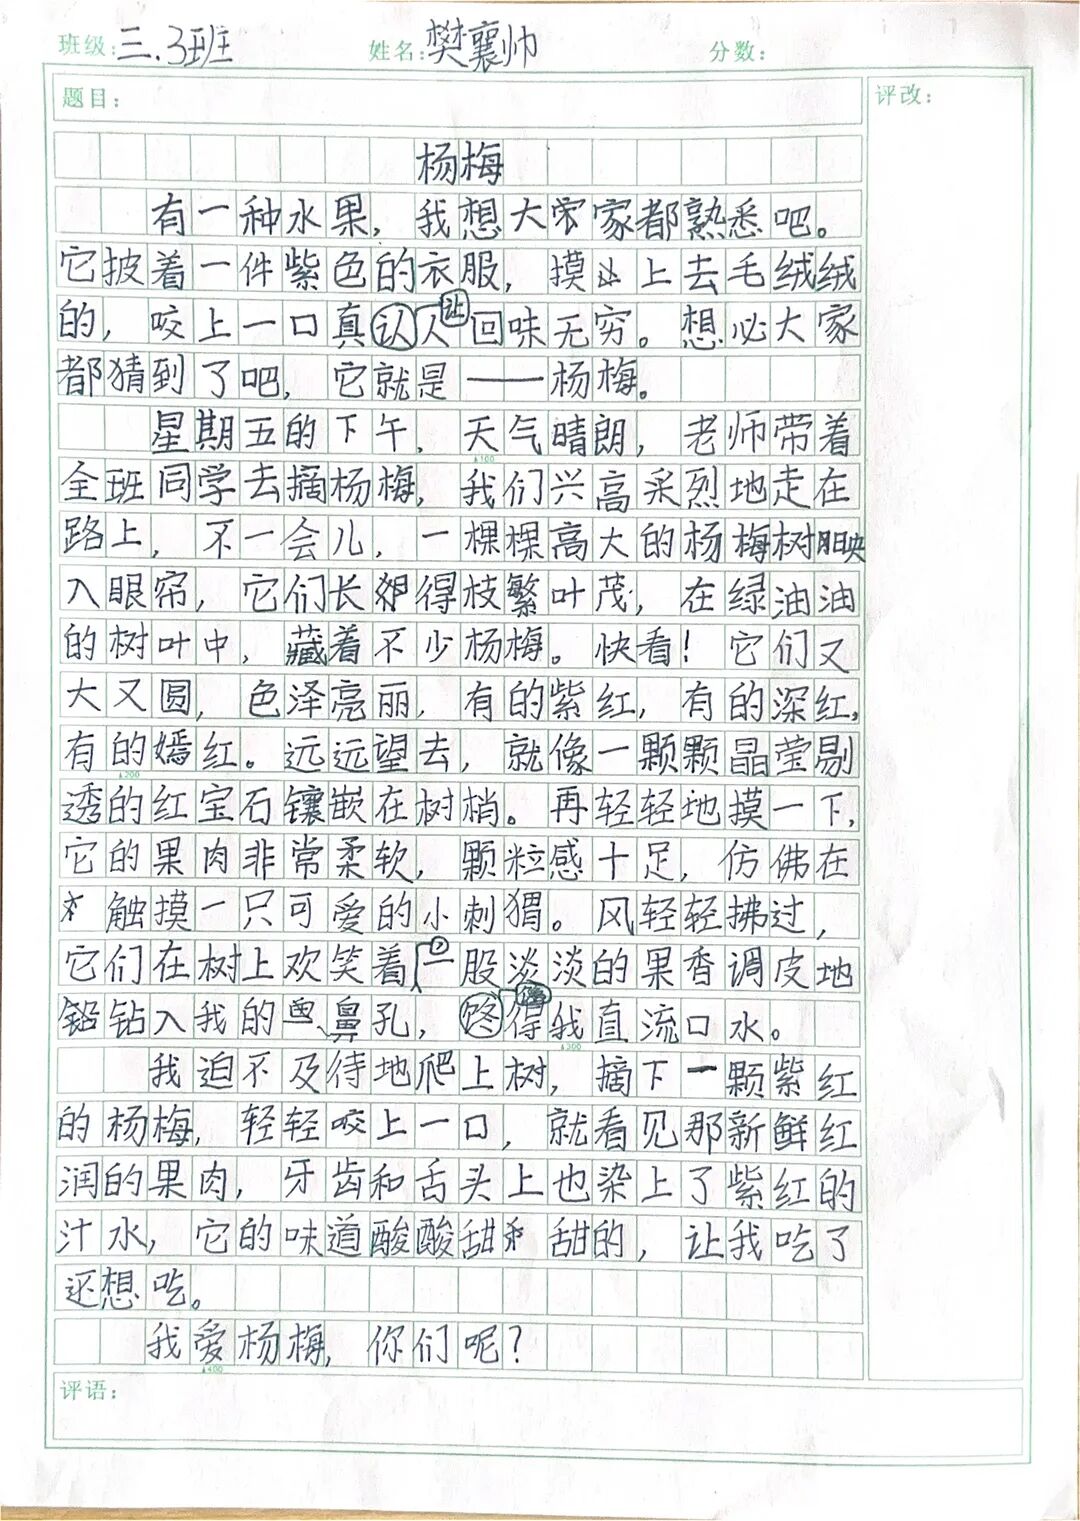 班级：三.3班 姓名：樊襄帅 分数：
题目： 评改：
杨梅
有一种水果，我想大家家都熟悉吧。
它披着一件紫色的衣服，摸上去毛绒绒
的，咬上一口真认人让回味无穷。想必大家
都猜到了吧，它就是——杨梅。
星期五的下午，天气晴朗，老师带着
全班同学去摘杨梅，我们兴高采烈地走在
路上，不一会儿，一棵棵高大的杨梅树映
入眼帘，它们长得枝繁叶茂，在绿油油
的树叶中，藏着不少杨梅。快看！它们又
大又圆，色泽亮丽，有的紫红，有的深红，
有的嫣红。远远望去，就像一颗颗晶莹剔
透的红宝石镶嵌在树梢。再轻轻地摸一下，
它的果肉非常柔软，颗粒感十足，仿佛在
触摸一只可爱的小刺猬。风轻轻拂过，
它们在树上欢笑着，一股淡淡的果香调皮地
钻入我的鼻孔，馋得我直流口水。
我迫不及待地爬上树，摘下一颗紫红
的杨梅，轻轻咬上一口，就看见那新鲜红
润的果肉，牙齿和舌头上也染上了紫红的
汁水，它的味道酸酸甜甜的，让我吃了
还想吃。
我爱杨梅，你们呢？
评语：